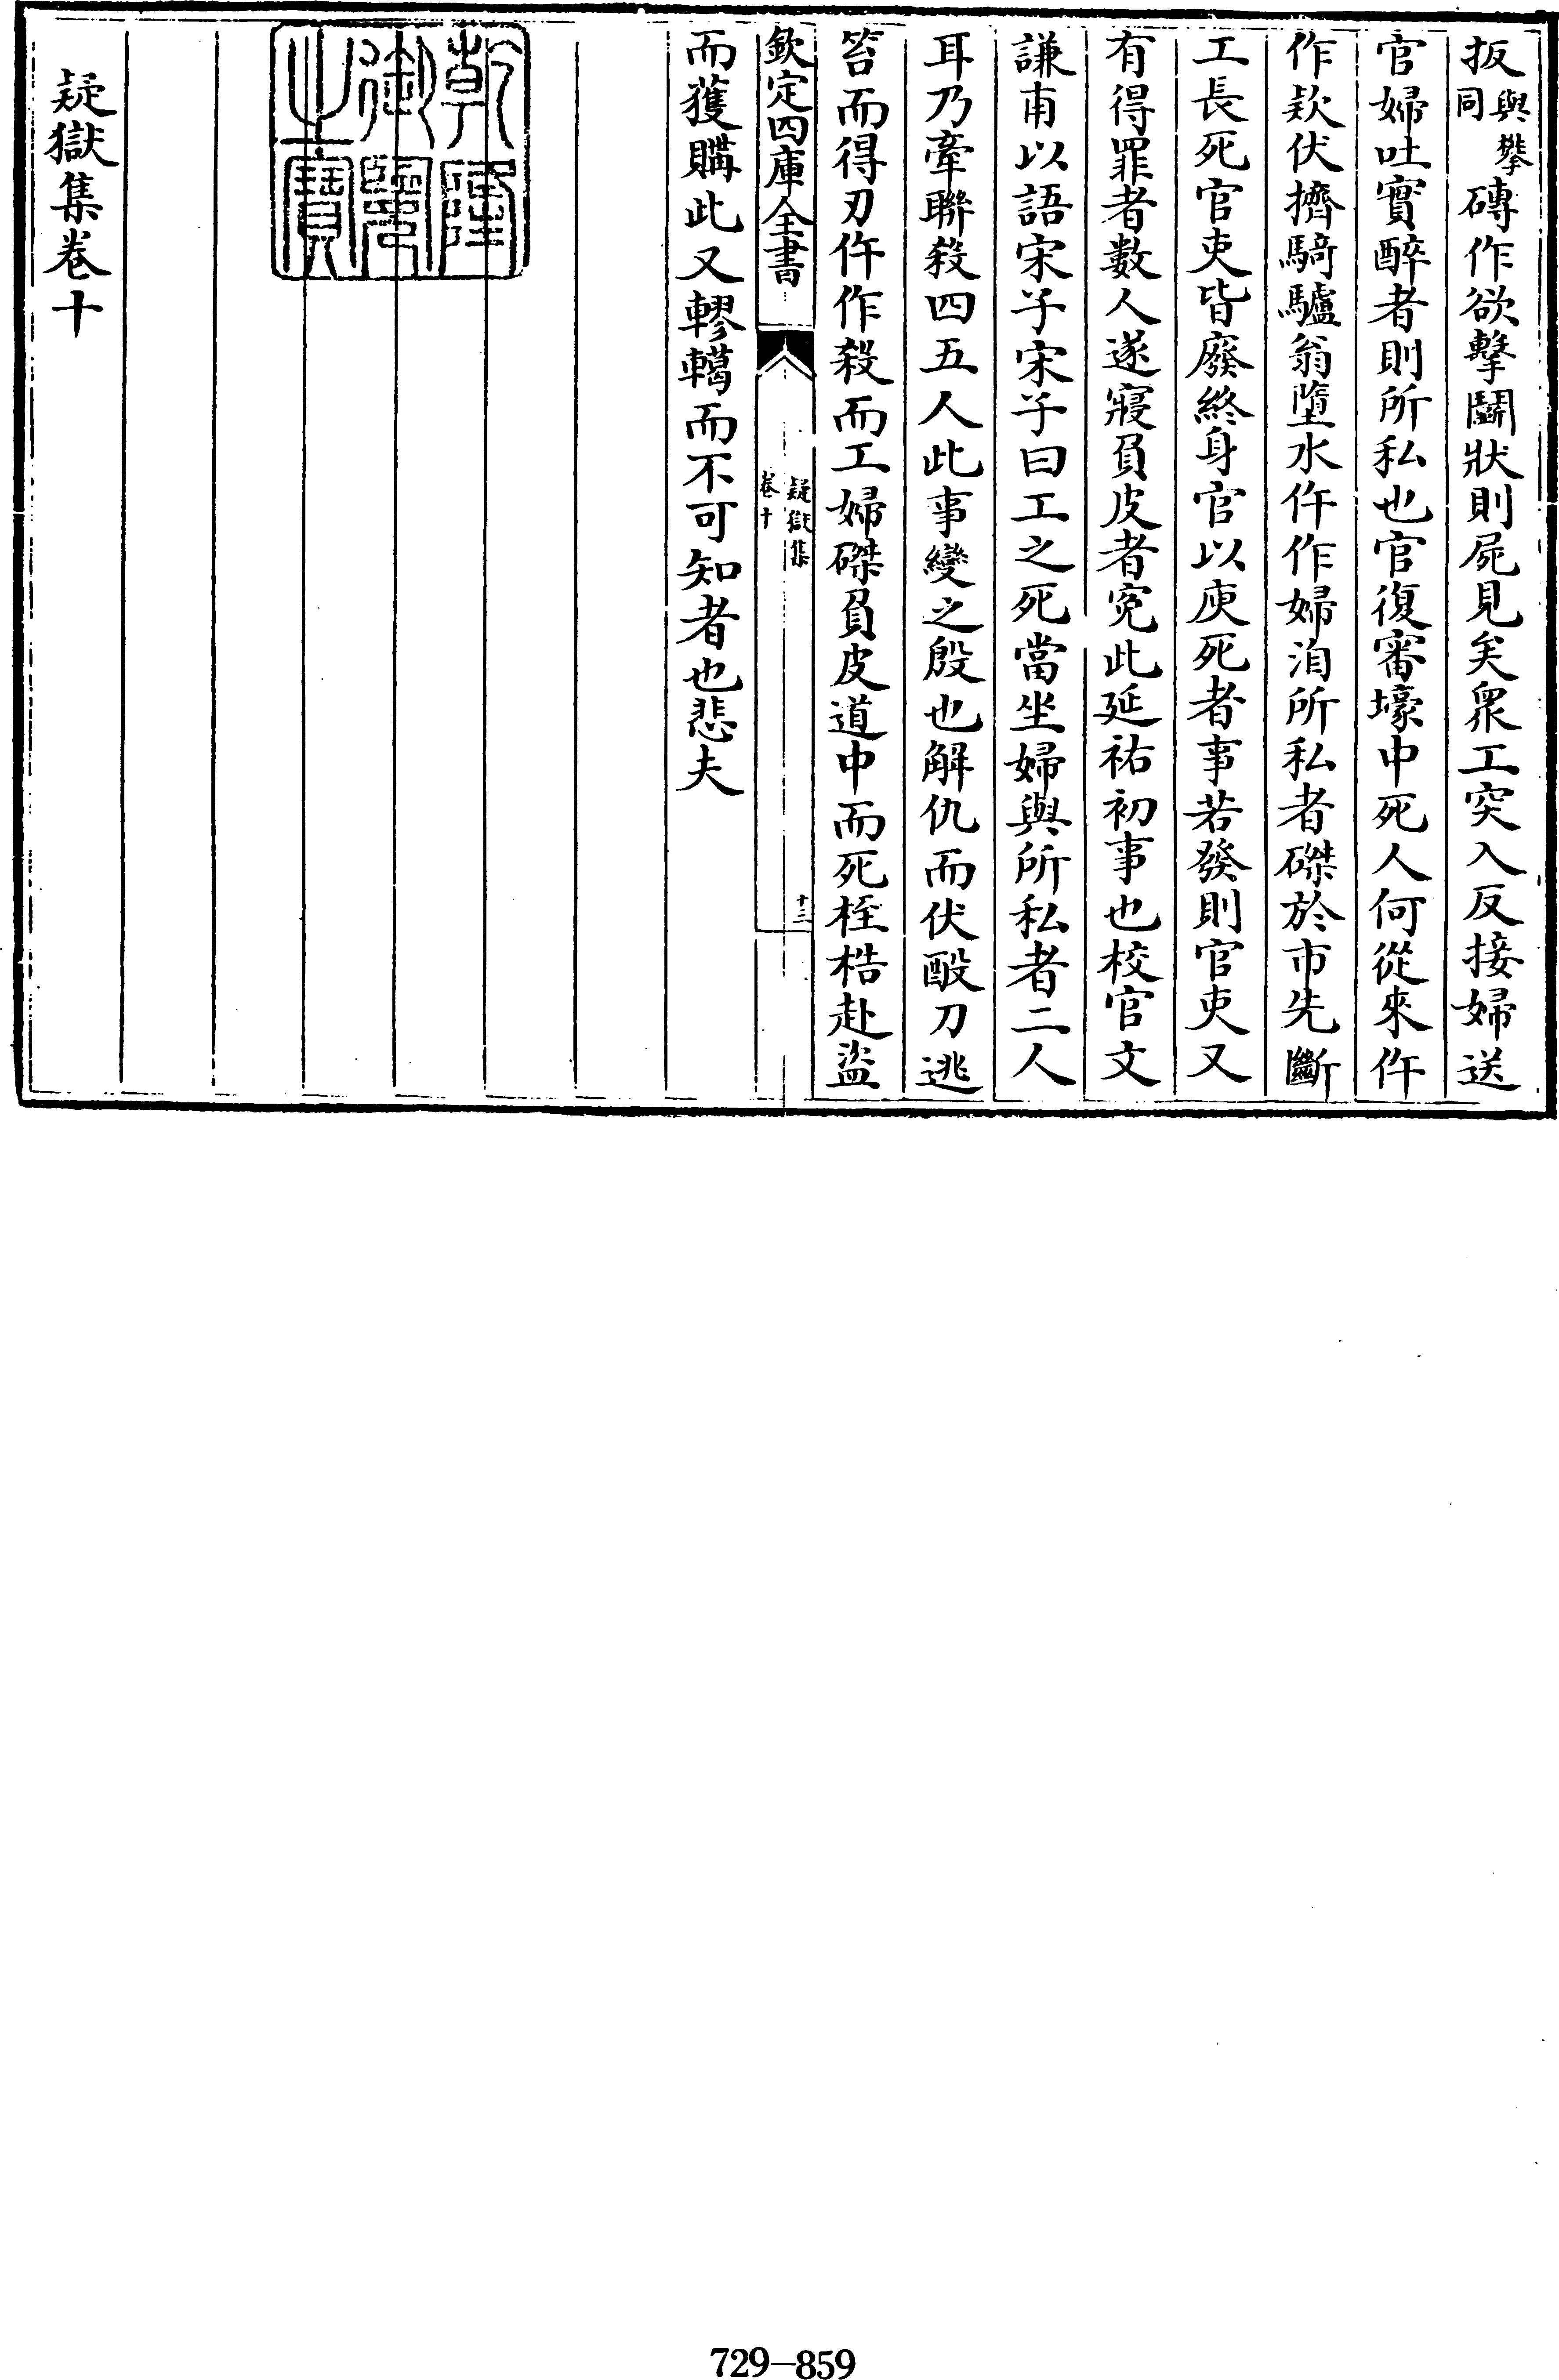 扳與攀同磚作欲擊鬭狀則屍見矣衆工突入反接婦送
官婦吐實醉者則所私也官復審壕中死人何從來仵
作欵伏擠騎驢翁墮水仵作婦洎所私者磔於市先斷
工長死官吏皆廢終身官以庾死者事若發則官吏又
有得罪者數人遂寢負皮者寃此延祐初事也校官文
謙甫以語宋子宋子曰工之死當坐婦與所私者二人
耳乃牽聯殺四五人此事變之殷也解仇而伏毆刀逃
笞而得刃仵作殺而工婦磔負皮道中而死桎梏赴盜
欽定四庫全書
疑獄集
卷十
十三
而獲購此又轇轕而不可知者也悲夫
乾隆御覽之寶
疑獄集卷十
729-859